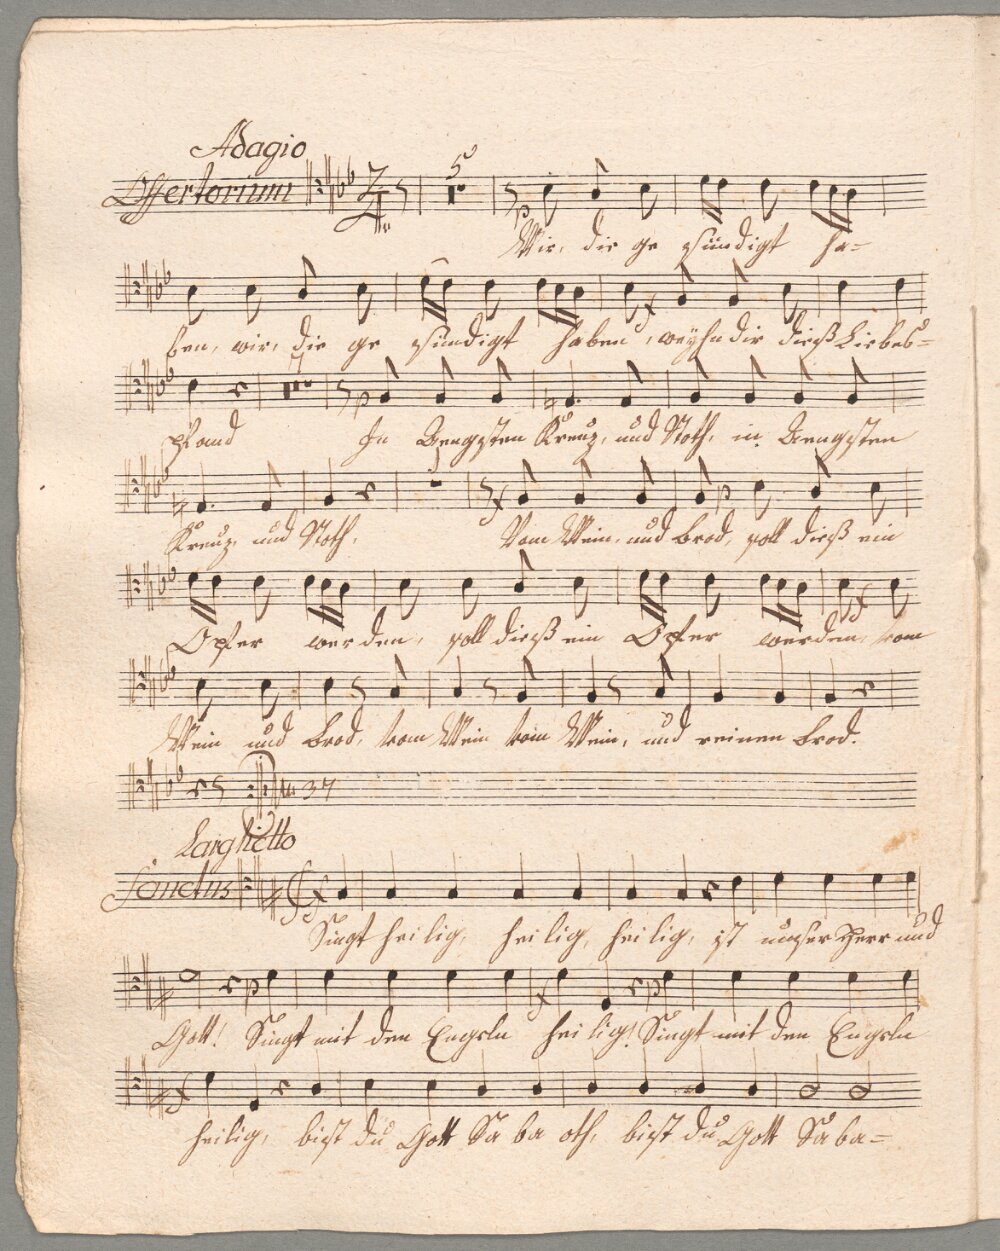 Adagio
Offertorium 2/4 5
Wir, die ge sündigt ha=
ben, wir, die ge sündigt haben, weyhn dir dieß Liebes=
7
pfand In Aengsten Kreuz, und Noth, in Aengsten
Kreuz, und Noth. Vom Wein, und brod, soll dieß ein
Opfer werden, soll dieß ein Opfer werden, vom
Wein und brod, vom Wein vom Wein, und reinen brod.
37
Larghetto
Sanctus
Singt heilig, heilig, heilig, ist unser Herr und
Gott! Singt mit den Engeln heilig! Singt mit den Engeln
heilig, bist du Gott Sa ba oth, bist du Gott Saba=